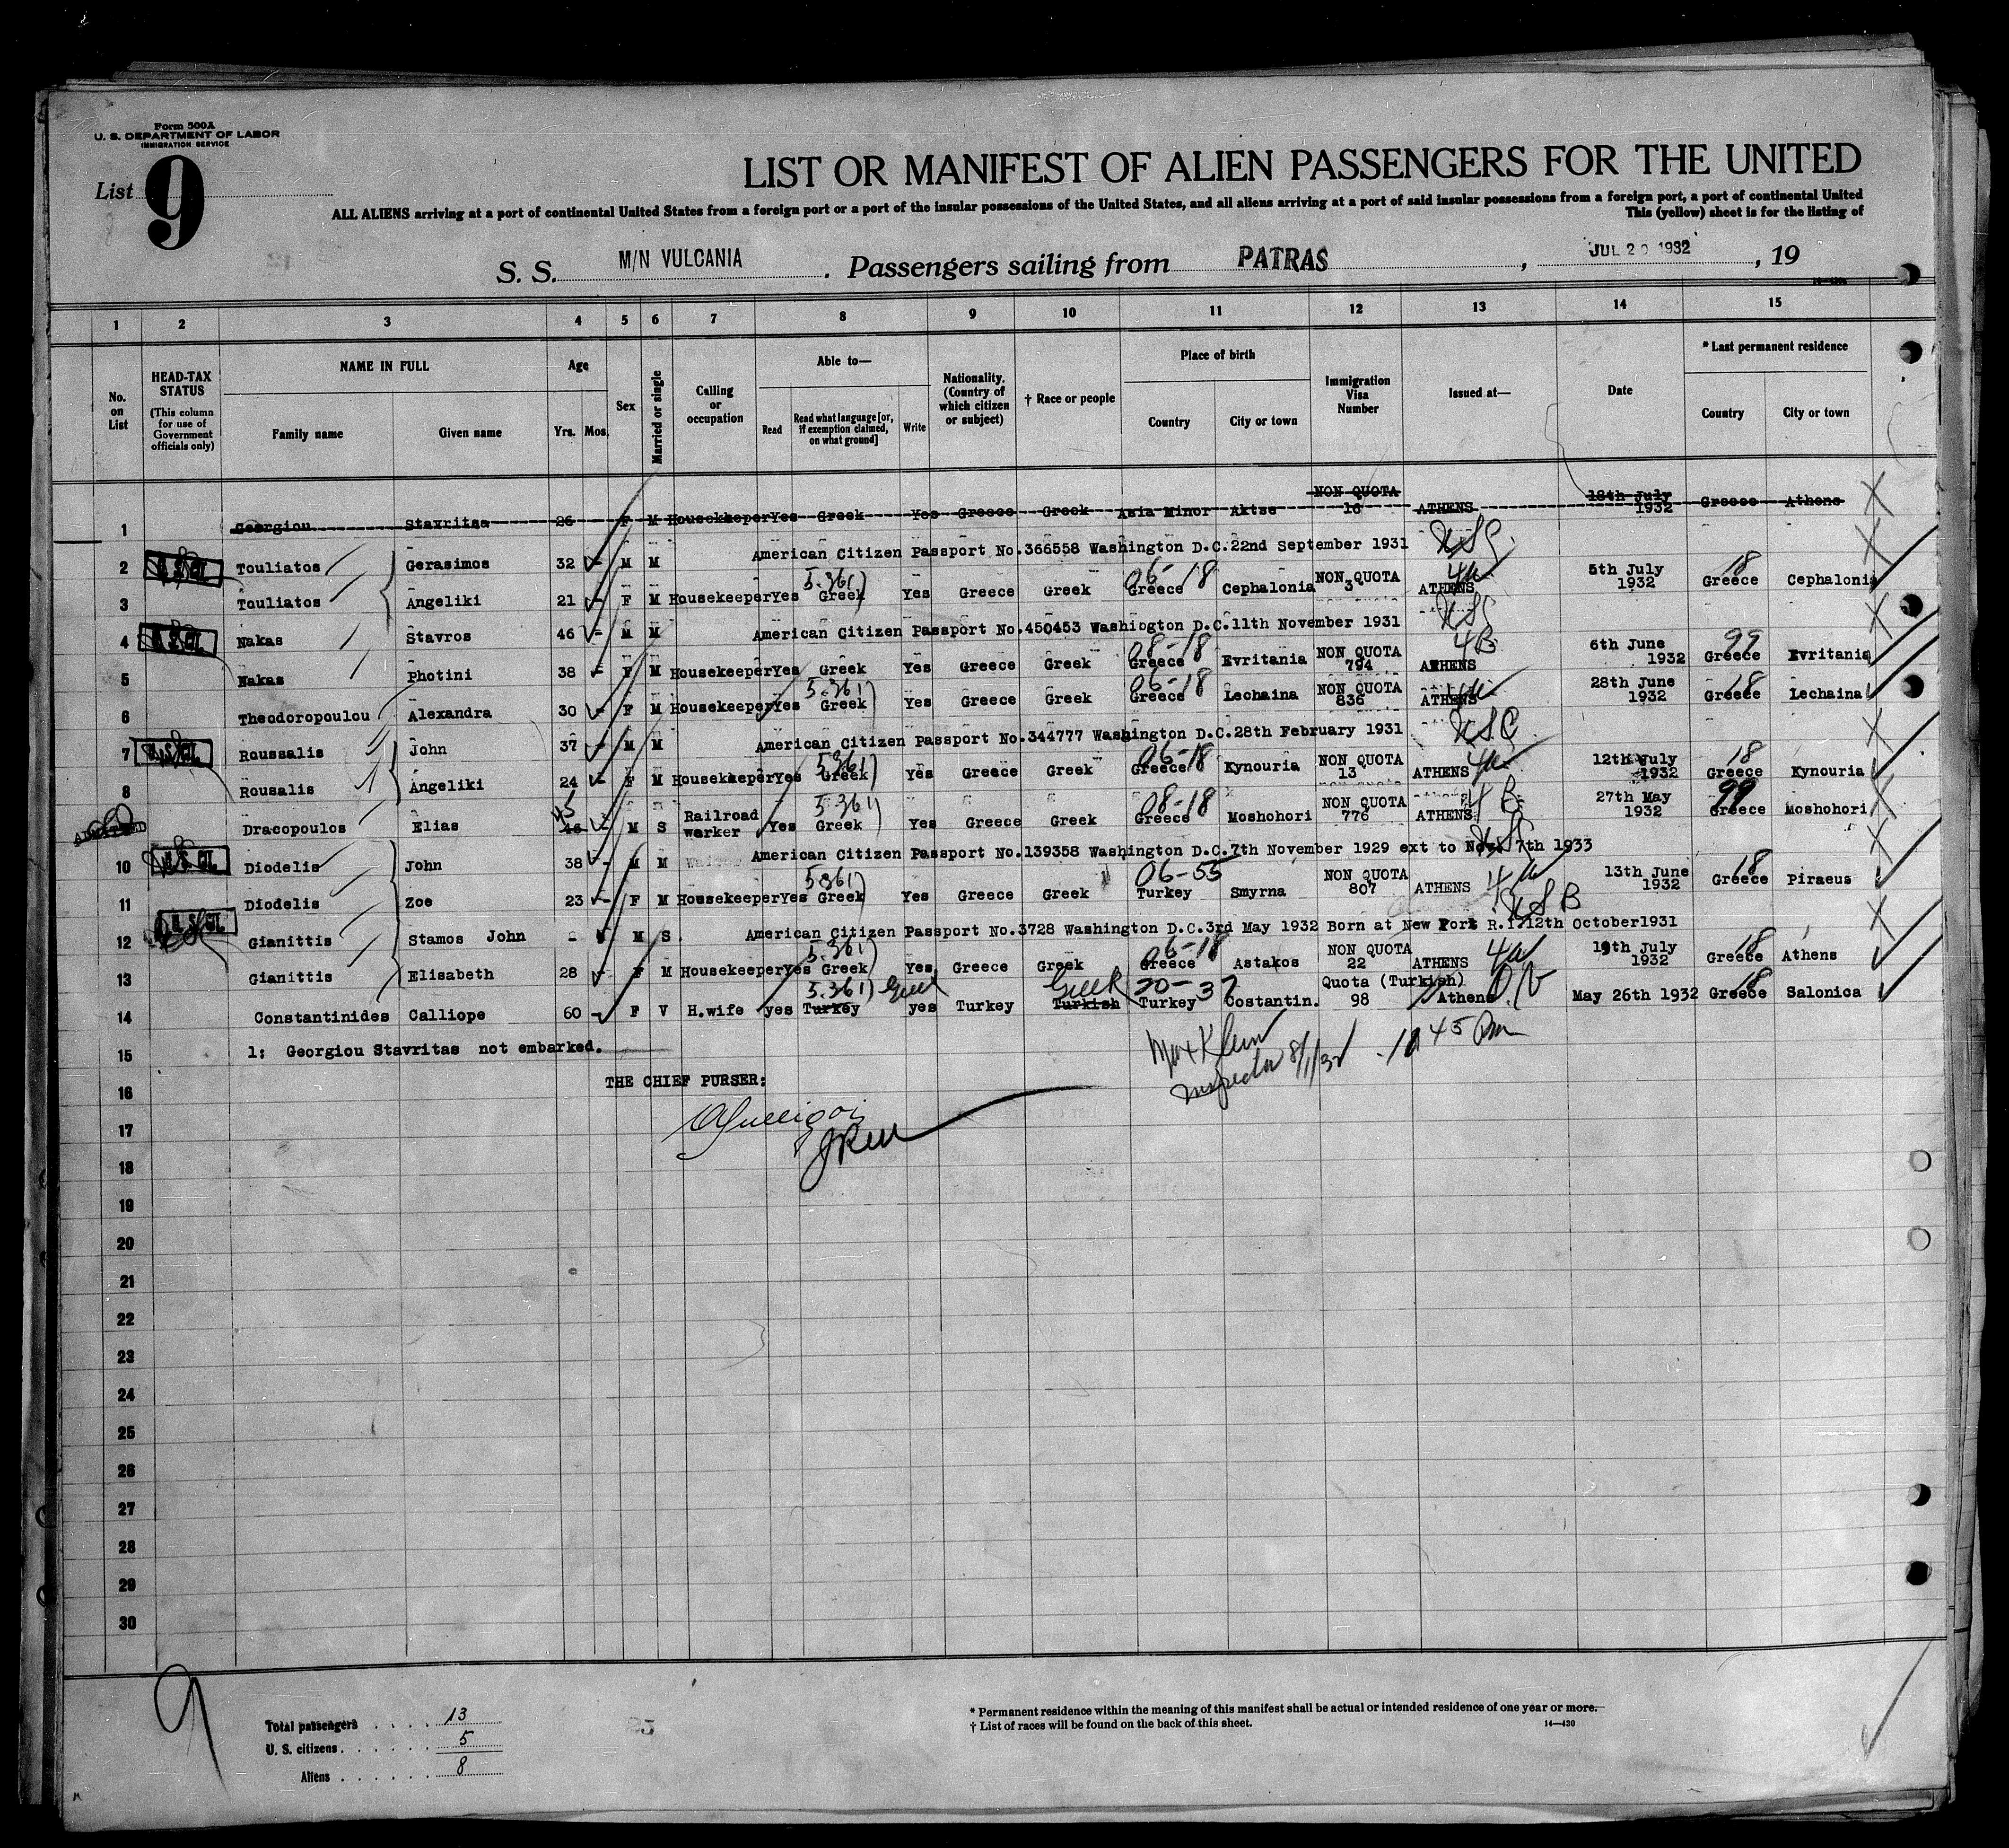 Form 500A
U. S. DEPARTMENT OF LABOR
IMMIGRATION SERVICE
List 9
LIST OR MANIFEST OF ALIEN PASSENGERS FOR THE UNITED
ALL ALIENS arriving at a port of continental United States from a foreign port or a port of the insular possessions of the United States, and all aliens arriving at a port of said insular possessions from a foreign port, a port of continental United
This (yellow) sheet is for the listing of
S. S. M/N VULCANIA. Passengers sailing from PATRAS, JUL 20 1932, 19
1 2 3 4 5 6 7 8 9 10 11 12 13 14 15
No. on List
HEAD-TAX STATUS (This column for use of Government officials only)
NAME IN FULL
Family name Given name
Age
Yrs. Mos.
Sex
Married or single
Calling or occupation
Able to—
Read Read what language [or, if exemption claimed, on what ground] Write
Nationality. (Country of which citizen or subject)
† Race or people
Place of birth
Country City or town
Immigration Visa Number
Issued at—
Date
* Last permanent residence
Country City or town
1 Georgiou Stavritsa 26 F M Housekkeper Yes Greek Yes Greece Greek Asia Minor Aktse NON QUOTA 16 ATHENS 18th July 1932 Greece Athens
2 Touliatos Gerasimos 32 - M M American Citizen Passport No.366558 Washington D.C.22nd September 1931
3 Touliatos Angeliki 21 - F M Housekeeper Yes 5.361) Greek Yes Greece Greek 06-18 Greece Cephalonia NON QUOTA 3 4a ATHENS 5th July 1932 18 Greece Cephalonia
4 Nakas Stavros 46 - M M American Citizen Passport No.450453 Washiogton D.C.11th November 1931
5 Nakas Photini 38 - F M Housekeeper Yes Greek Yes Greece Greek 08-18 Greece Evritania NON QUOTA 794 4B ATHENS 6th June 1932 99 Greece Evritania
6 Theodoropoulou Alexandra 30 - F M Housekeeper Yes 5.361) Greek Yes Greece Greek 06-18 Greece Lechaina NON QUOTA 836 ATHENS 28th June 1932 18 Greece Lechaina
7 Roussalis John 37 - M M American Citizen Passport No.344777 Washington D.C.28th February 1931
8 Rousalis Angeliki 24 - F M Housekkeper Yes 5.361) Greek Yes Greece Greek 06-18 Greece Kynouria NON QUOTA 13 ATHENS 4a 12th July 1932 18 Greece Kynouria
ADMITTED Dracopoulos Elias 45 - M S Railroad warker Yes 5.361) Greek Yes Greece Greek 08-18 Greece Moshohori NON QUOTA 776 ATHENS 4B 27th May 1932 99 Greece Moshohori
10 Diodelis John 38 - M M American Citizen Passport No.139358 Washington D.C.7th November 1929 ext to Nov. 7th 1933
11 Diodelis Zoe 23 - F M Housekeeper Yes 5361) Greek Yes Greece Greek 06-55 Turkey Smyrna NON QUOTA 807 ATHENS 4a 13th June 1932 18 Greece Piraeus
12 Gianittis Stamos John M S American Citizen Passport No.3728 Washington D.C.3rd May 1932 Born at New Port R.I.12th October1931
13 Gianittis Elisabeth 28 F M Housekeeper Yes 5.361) Greek Yes Greece Greek 06-18 Greece Astakos NON QUOTA 22 ATHENS 4a 19th July 1932 18 Greece Athens
14 Constantinides Calliope 60 - F V H.wife yes 5.361) Turkey Greek yes Turkey Turkish Greek 30-37 Turkey Costantin. Quota (Turkish) 98 Athens May 26th 1932 18 Greece Salonica
15 1: Georgiou Stavritas not embarked.
Max Klein
Inspector 8/1/32 10 45 Am
16 THE CHIEF PURSER:
17
18
19
20
21
22
23
24
25
26
27
28
29
30
9
Total passengers 13
U. S. citizens 5
Aliens 8
* Permanent residence within the meaning of this manifest shall be actual or intended residence of one year or more.
† List of races will be found on the back of this sheet. 14—430